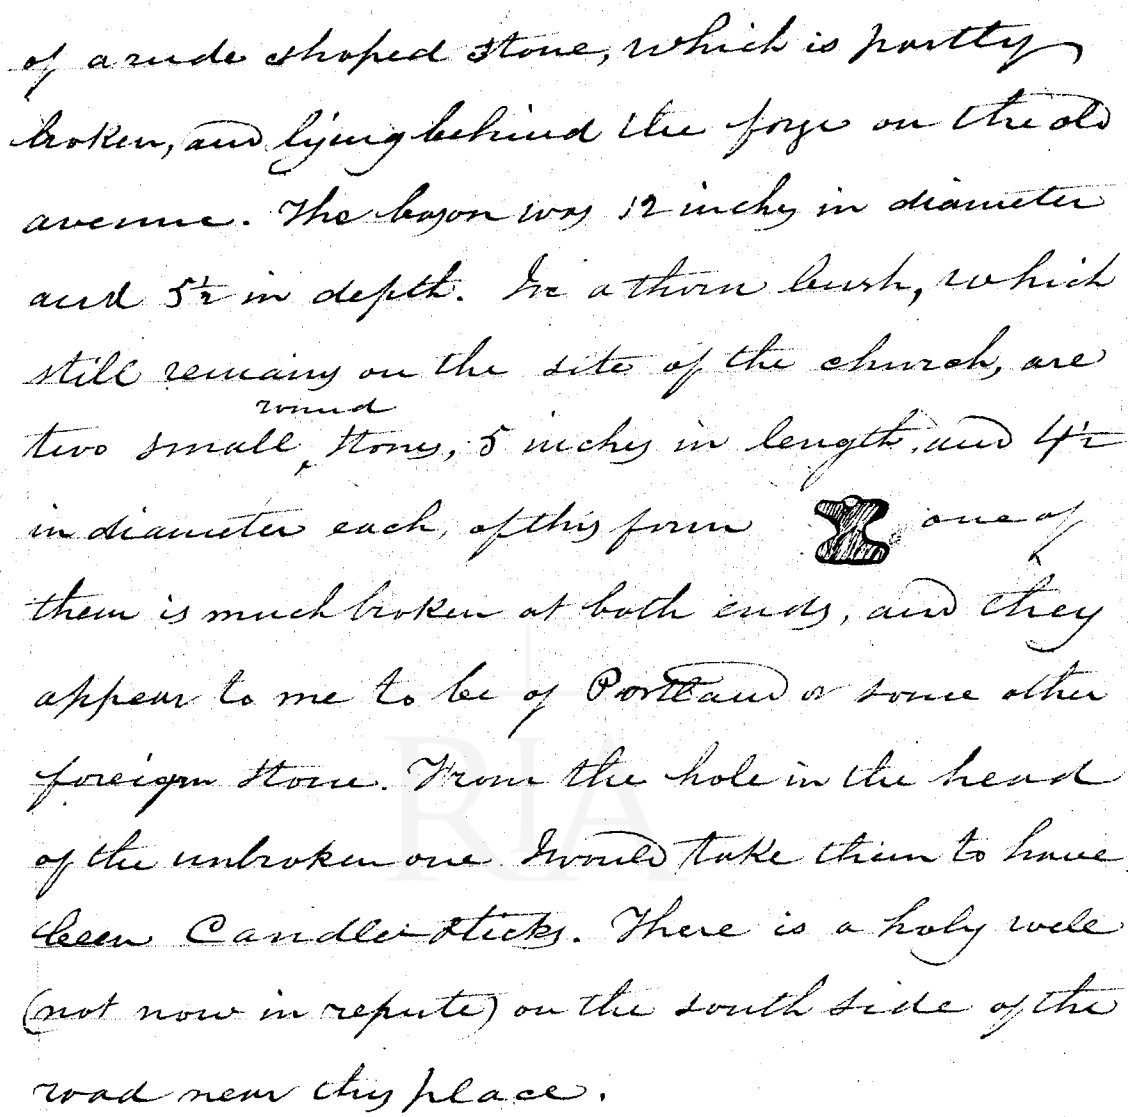 of a rude shaped stone, which is partly
broken, and lying behind the forge on the old
avenue. The bason was 12 inches in diameter
and 5½ in depth. In a thorn bush, which
still remains on the site of the church, are
round
two small ‸ stones, 5 inches in length, and 4½
in diameter each, of this form one of
them is much broken at both ends, and they
appear to me to be of Portland or some other
foreign stone. From the hole in the head
of the unbroken one I would take them to have
been Candle-sticks. There is a holy well
(not now in repute) on the south side of the
road near this place.
RIA